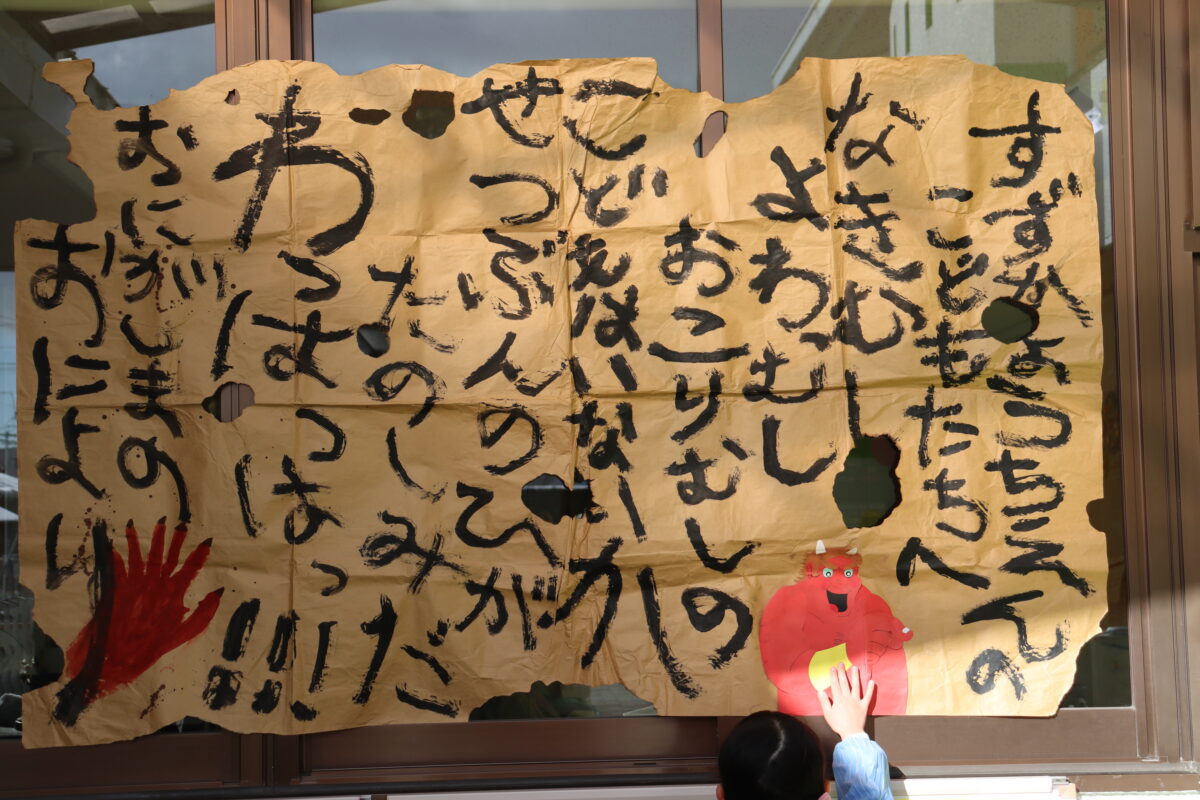 すずかようちえんの
こどもたちへ
なきむし
よわむし
おこりむしの
こどもはいないかー
せつぶんのひが
たのしみだ
わっはっはっ!!!
おにがしまの
おにより